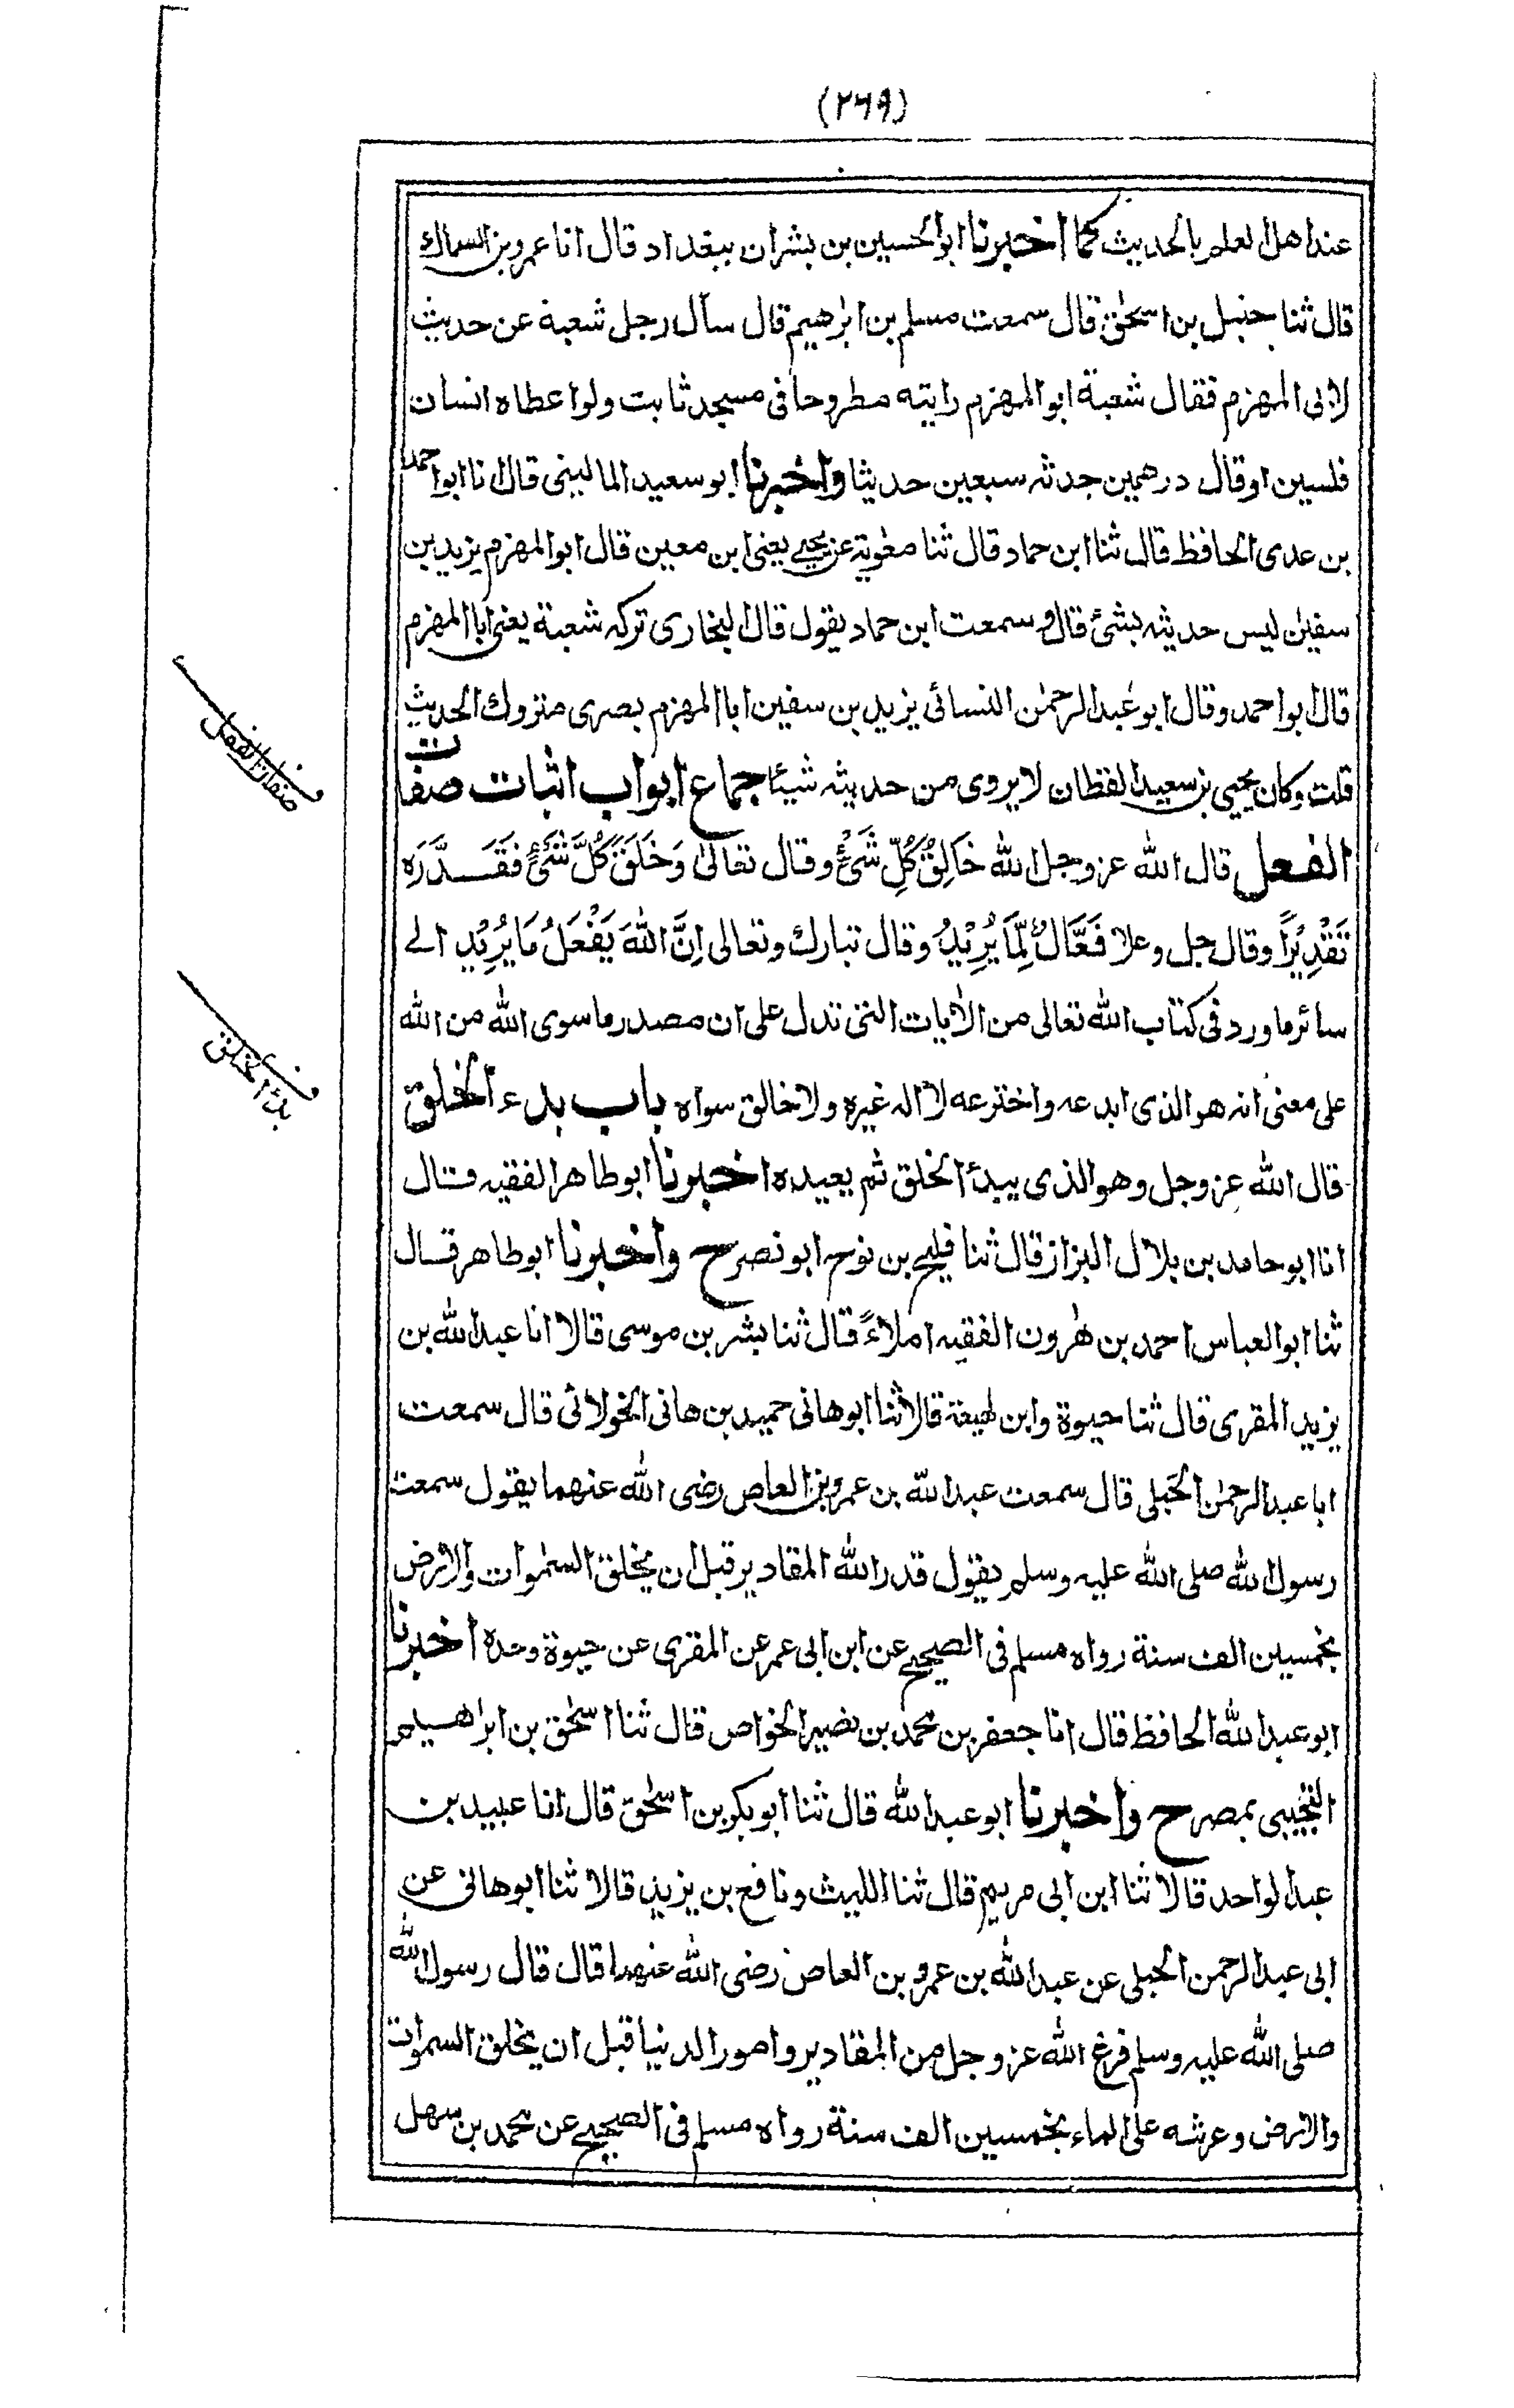 (٢٦٩)
عند اهل العلم بالحديث كما اخبرنا ابو الحسين بن بشران ببغداد قال انا عمرو بن السماك
قال ثنا حنبل بن اسحٰق قال سمعت مسلم بن ابرٰهيم قال سأل رجل شعبة عن حديث
لابى المهزم فقال شعبة ابو المهزم رايته مطروحا فى مسجد ثابت ولو اعطاه انسان
فلسين او قال درهمين حدثه سبعين حديثا واخبرنا ابو سعيد المالينى قال انا ابو احمد
بن عدى الحافظ قال ثنا ابن حماد قال ثنا معٰوية عن يحيى يعنى ابن معين قال ابو المهزم يزيد بن
سفيٰن ليس حديثه بشئ قال وسمعت ابن حماد يقول قال البخارى تركه شعبة يعنى ابا المهزم
قال ابو احمد وقال ابو عبد الرحمٰن النسائى يزيد بن سفين ابا المهزم بصرى متروك الحديث
قلت وكان يحيى بن سعيد القطان لا يروى من حديثه شيئا جماع ابواب اثبات صفات
الفعل قال الله عز وجل الله خَالِقُ كُلِّ شَئْءٍ وقال تعالىٰ وَخَلَقَ كُلَّ شَئْءٍ فَقَدَّرَه
تَقْدِيْرًا وقال جل وعلا فَعَّالٌ لِّمَا يُرِيْدُ وقال تبارك وتعالى اِنَّ اللهَ يَفْعَلُ مَا يُرِيْد الى
سائر ما ورد فى كتاب الله تعالى من الاٰيات التى تدل على ان مصدر ما سوى الله من الله
على معنى انه هو الذى ابدعه واخترعه لا اله غيره ولا خالق سواه باب بدء الخلق
قال الله عز وجل وهو الذى يبدأ الخلق ثم يعيده اخبرنا ابو طاهر الفقيه قال
انا ابو حامد بن بلال البزاز قال ثنا فليح بن نوح ابو نصر ح واخبرنا ابو طاهر قال
ثنا ابو العباس احمد بن هٰرون الفقيه املاءً قال ثنا بشر بن موسى قالا انا عبد الله بن
يزيد المقرى قال ثنا حيوة وابن لهيعة قالا ثنا ابو هانى حميد بن هانى الخولانى قال سمعت
ابا عبد الرحمٰن الحبلى قال سمعت عبد الله بن عمرو بن العاص رضى الله عنهما يقول سمعت
رسول الله صلى الله عليه وسلم يقول قدر الله المقادير قبل ان يخلق السمٰوات والارض
بخمسين الف سنة رواه مسلم فى الصحيح عن ابن ابى عمر عن المقرى عن حيوة وحده اخبرنا
ابو عبد الله الحافظ قال انا جعفر بن محمد بن نصير الخواص قال ثنا اسحٰق بن ابراهيم
التجيبى بمصر ح واخبرنا ابو عبد الله قال ثنا ابو بكر بن اسحٰق قال انا عبيد بن
عبد الواحد قالا ثنا ابن ابى مريم قال ثنا الليث ونافع بن يزيد قالا ثنا ابو هانى عن
ابى عبد الرحمن الحبلى عن عبد الله بن عمرو بن العاص رضى الله عنهما قال قال رسول الله
صلى الله عليه وسلم فرغ الله عز وجل من المقادير وامور الدنيا قبل ان يخلق السموات
والارض وعرشه على الماء بخمسين الف سنة رواه مسلم فى الصحيح عن محمد بن سهل
صفات الفعل
بدء الخلق